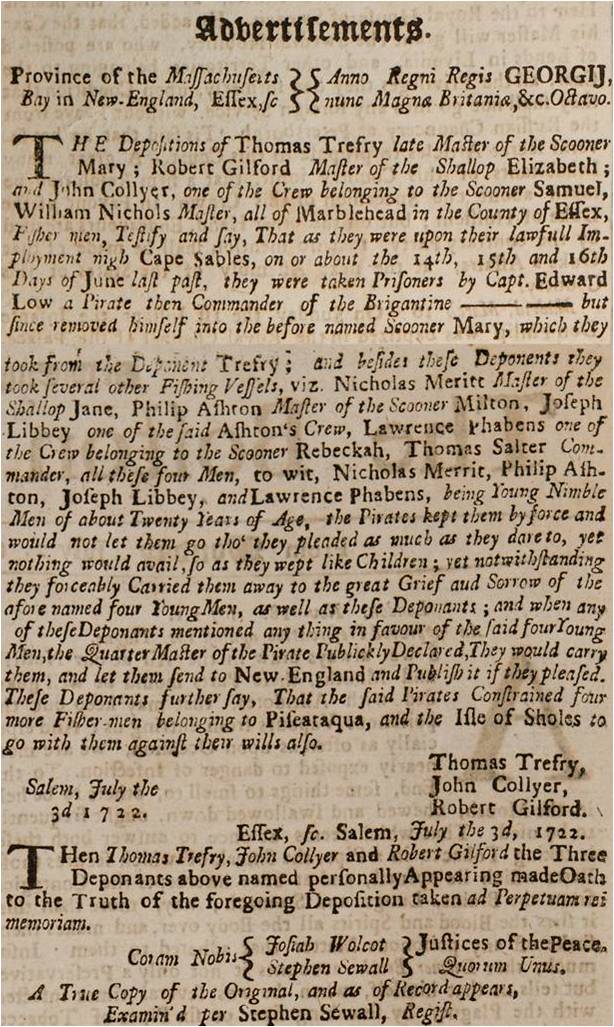 Advertiſements.
Province of the Maſſachuſetts } { Anno Regni Regis GEORGIJ,
Bay in New-England, Eſſex,ſc } { nunc Magnæ Britaniæ,&c.Octavo.
THE Depoſitions of Thomas Trefry late Maſter of the Scooner
Mary ; Robert Gilford Maſter of the Shallop Elizabeth ;
and John Collyer, one of the Crew belonging to the Scooner Samuel,
William Nichols Maſter, all of Marblehead in the County of Eſſex,
Fiſher men, Teſtify and ſay, That as they were upon their lawfull Im-
ployment nigh Cape Sables, on or about the 14th, 15th and 16th
Days of June laſt paſt, they were taken Priſoners by Capt. Edward
Low a Pirate then Commander of the Brigantine ——— ——— but
ſince removed himſelf into the before named Scooner Mary, which they
took from the Deponent Trefry ; and beſides theſe Deponents they
took ſeveral other Fiſhing Veſſels, viz. Nicholas Meritt Maſter of the
Shallop Jane, Philip Aſhton Maſter of the Scooner Milton, Joſeph
Libbey one of the ſaid Aſhton's Crew, Lawrence Phabens one of
the Crew belonging to the Scooner Rebeckah, Thomas Salter Com-
mander, all theſe four Men, to wit, Nicholas Merrit, Philip Aſh-
ton, Joſeph Libbey, and Lawrence Phabens, being Young Nimble
Men of about Twenty Years of Age, the Pirates kept them by force and
would not let them go tho' they pleaded as much as they dare to, yet
nothing would avail, ſo as they wept like Children ; yet notwithſtanding
they forceably Carried them away to the great Grief aud Sorrow of the
afore named four Young Men, as well as theſe Deponants ; and when any
of theſe Deponants mentioned any thing in favour of the ſaid four Young
Men, the Quarter Maſter of the Pirate Publickly Declared, They would carry
them, and let them ſend to New-England and Publiſh it if they pleaſed.
Theſe Deponants further ſay, That the ſaid Pirates Conſtrained four
more Fiſher-men belonging to Piſcataqua, and the Iſle of Sholes to
go with them againſt their wills alſo.
Thomas Trefry,
Salem, July the John Collyer,
3d 1722. Robert Gilford.
Eſſex, ſc. Salem, July the 3d, 1722.
THen Thomas Trefry, John Collyer and Robert Gilford the Three
Deponants above named perſonally Appearing made Oath
to the Truth of the foregoing Depoſition taken ad Perpetuam rei
memoriam.
Coram Nobis { Joſiah Wolcot } Juſtices of the Peace.
{ Stephen Sewall } Quorum Unus.
A True Copy of the Original, and as of Record appears,
Examin'd per Stephen Sewall, Regiſt.